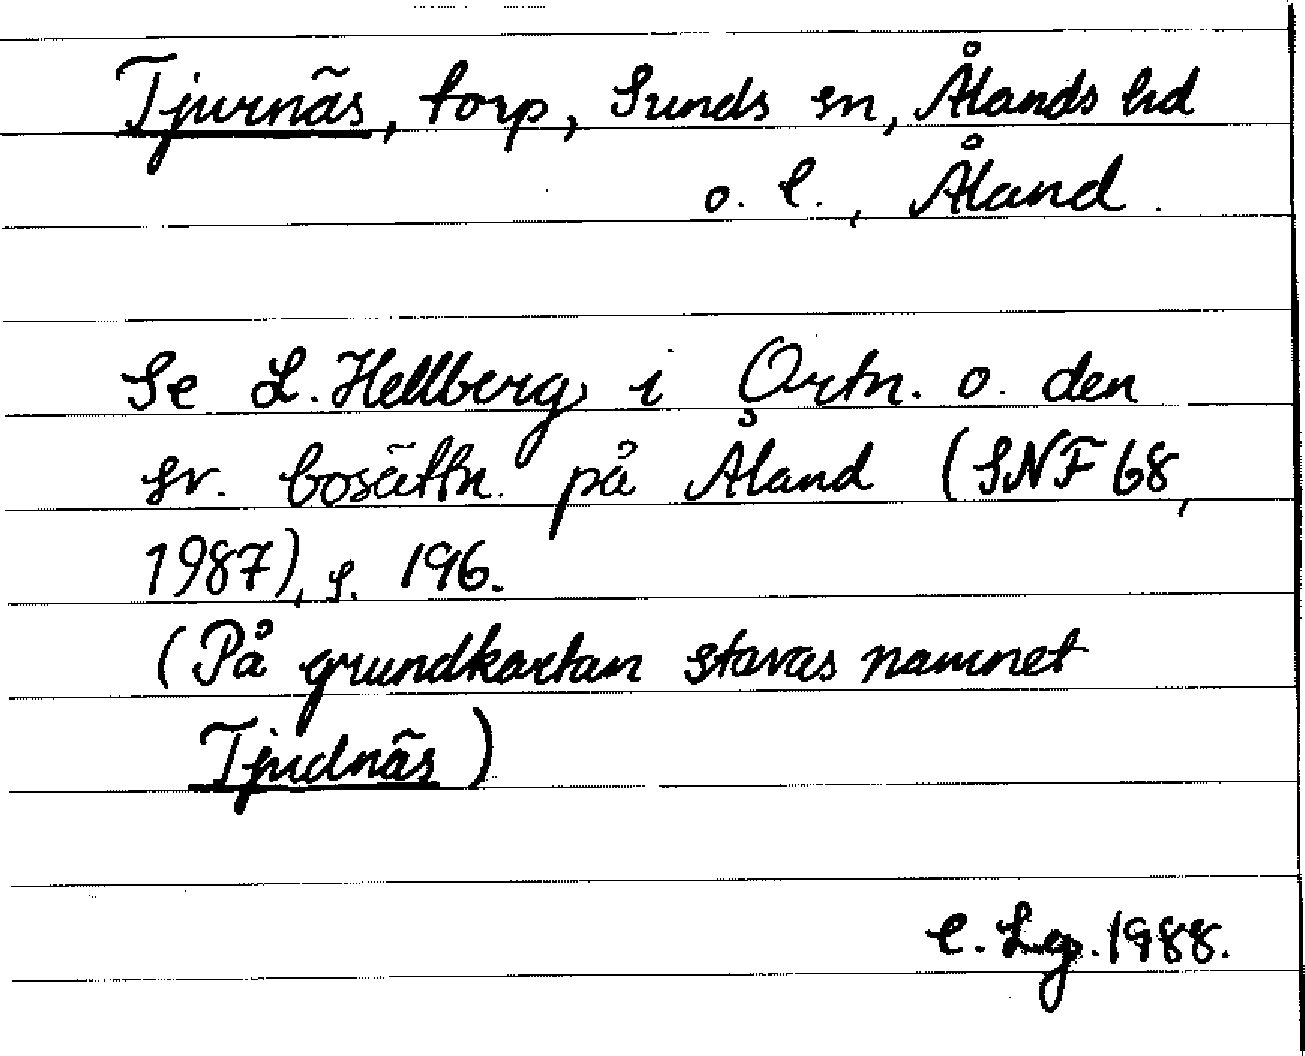 Tjurnäs, torp, Sunds sn, Ålands hd
o. l., Åland.
Se L. Hellberg i Ortn. o. den
sv. bosättn. på Åland (SNF 68,
1987), s. 196.
(På grundkartan stavas namnet
Tjudnäs)
C. Lg. 1988.